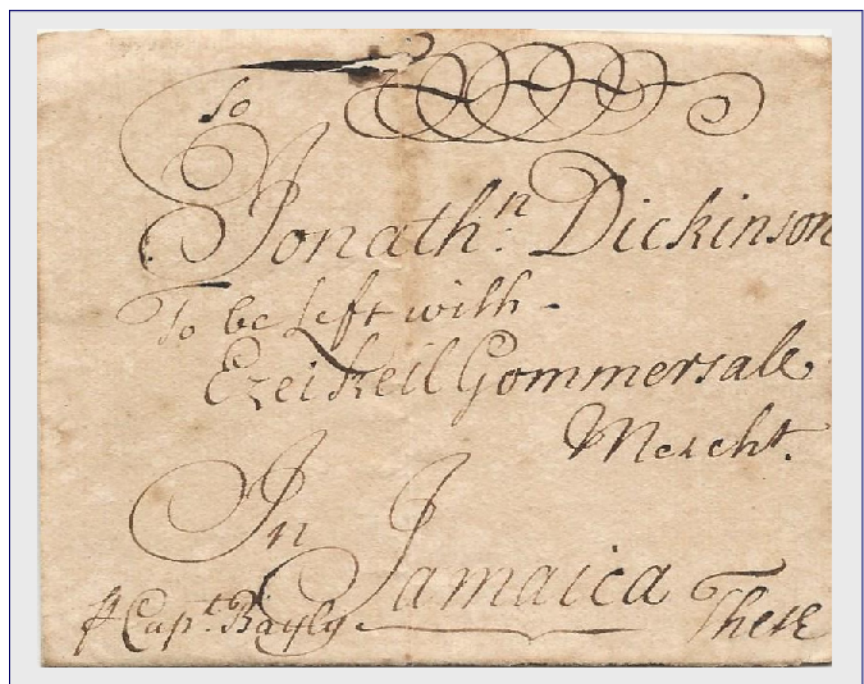 To
Jonathn: Dickinson
To be Left with
Ezeikeil Gommersale
Mercht.
In Jamaica
There
Capt. Bayly